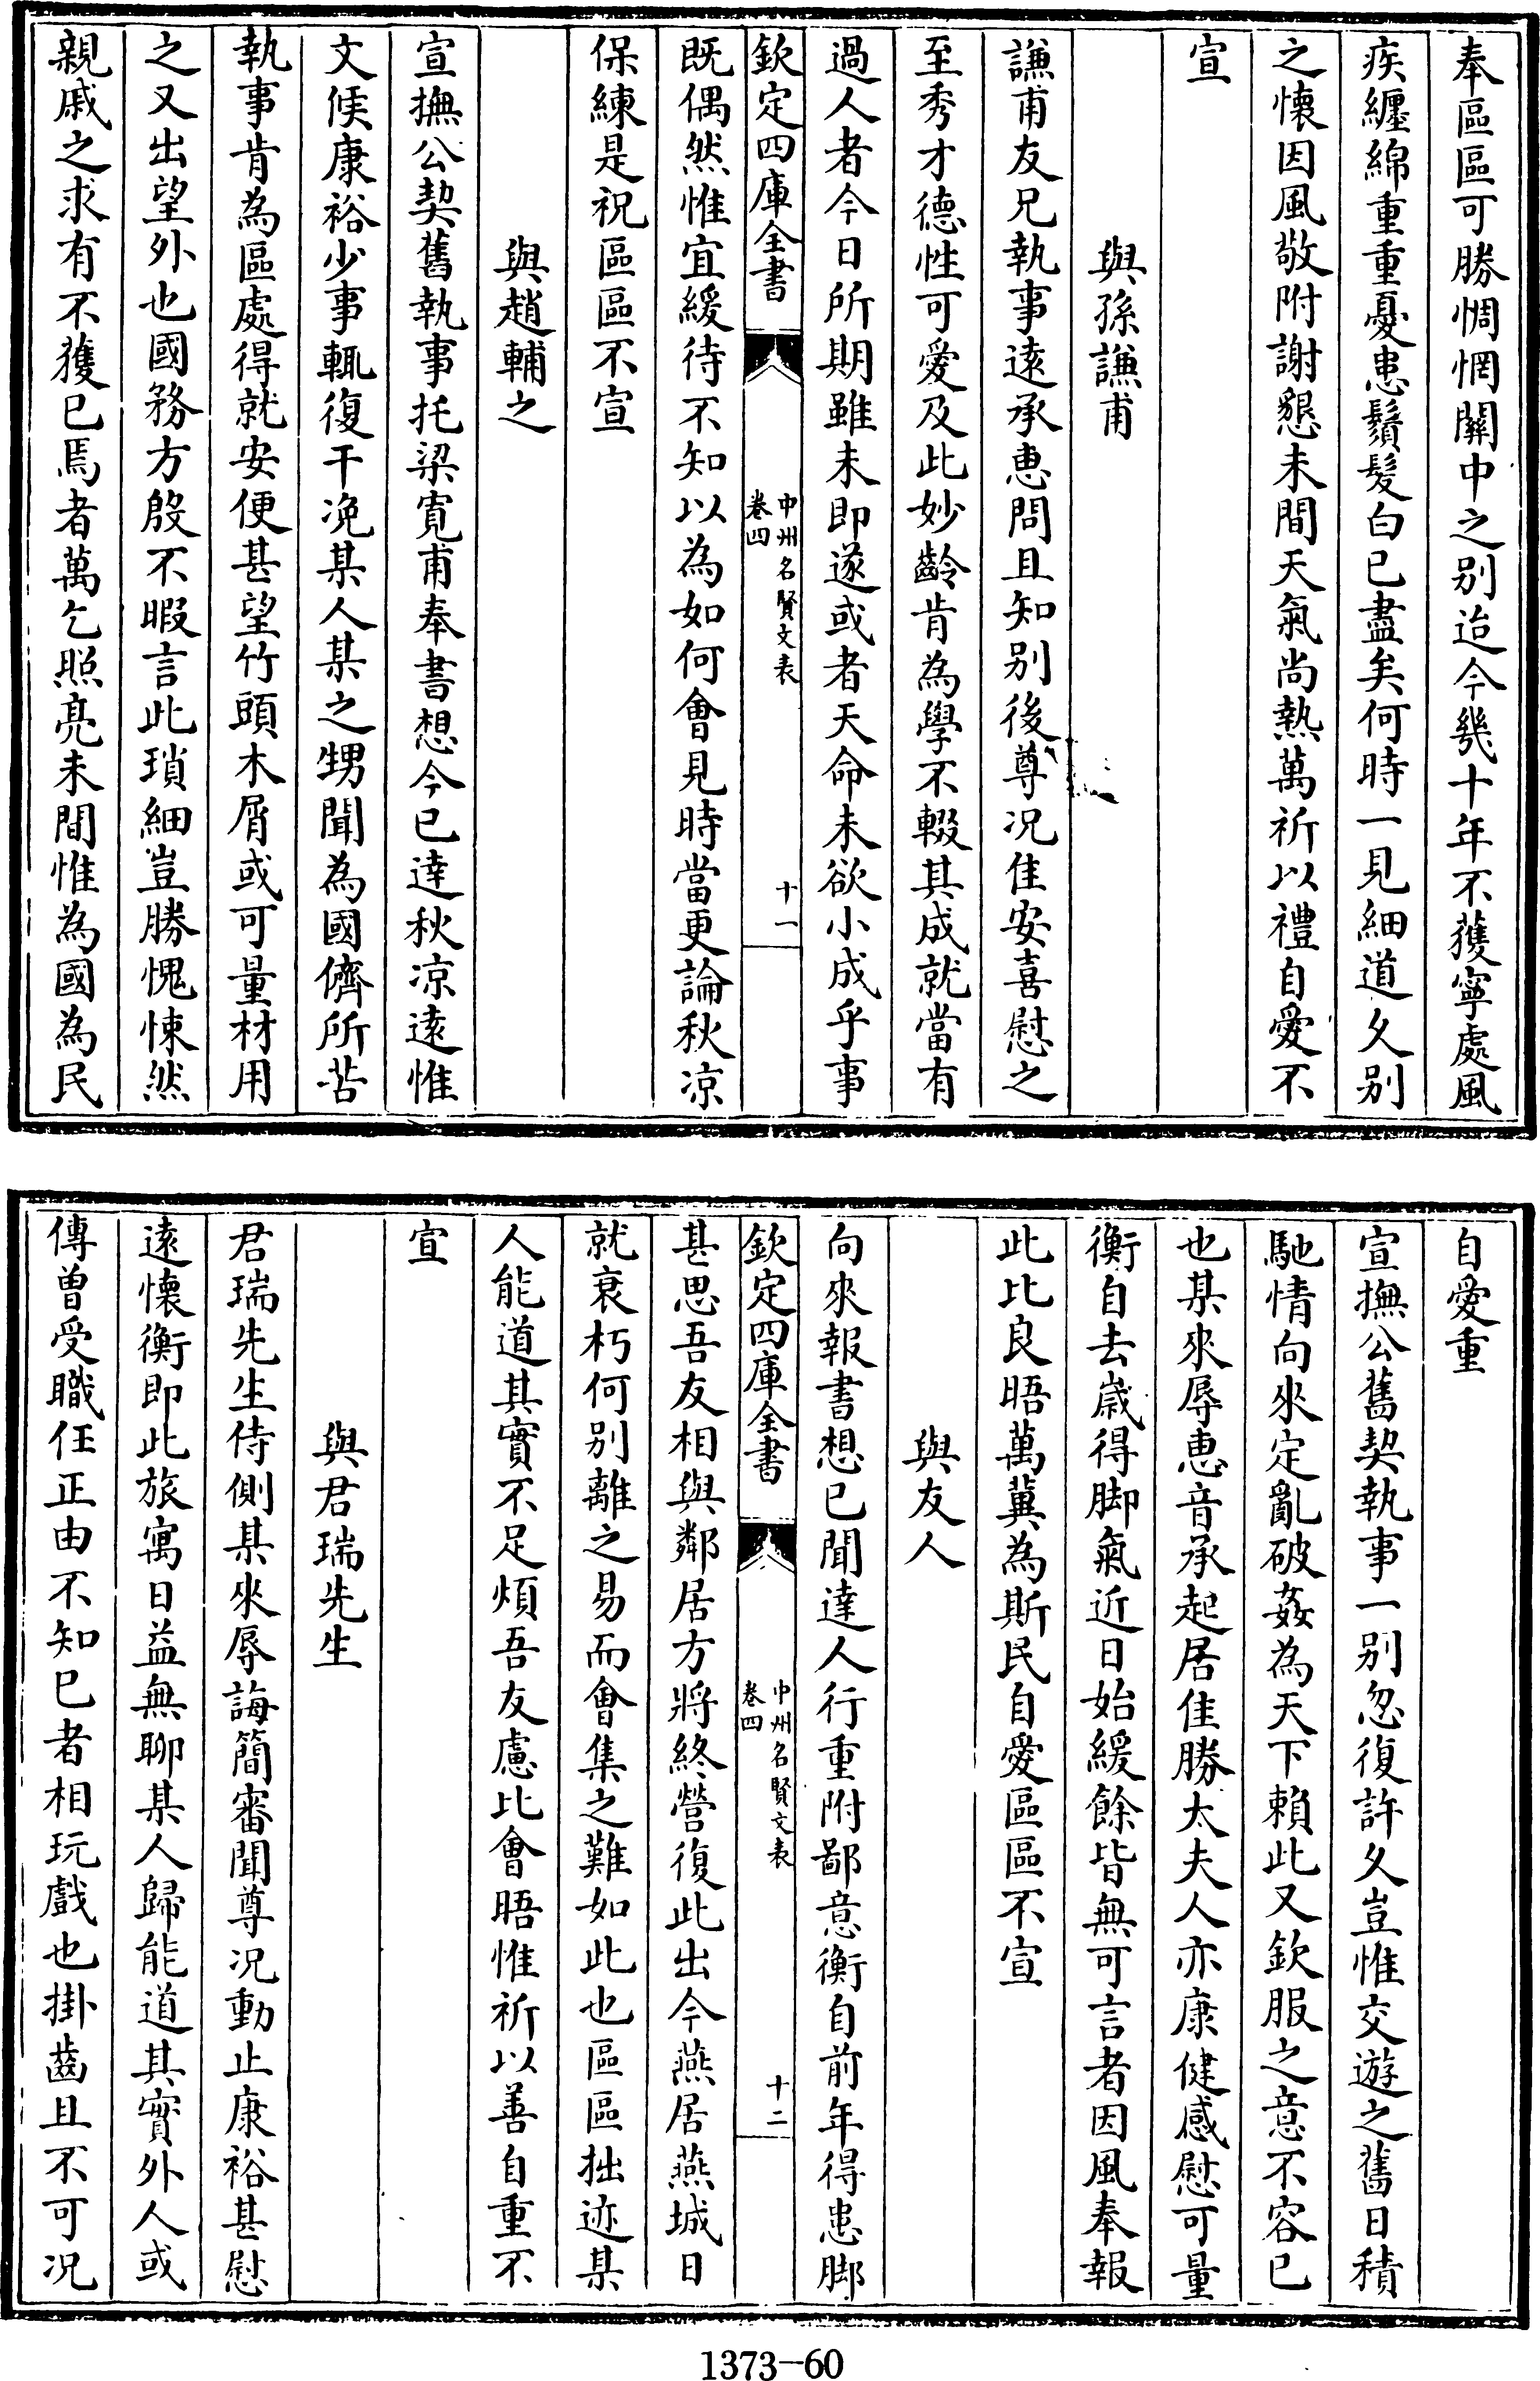 奉區區可勝惆惘闗中之别迨今幾十年不獲寧處風
疾纏綿重重憂患鬚髪白已盡矣何時一見細道久别
之懐因風敬附謝懇未間天氣尚熱萬祈以禮自愛不
宣
與孫謙甫
謙甫友兄執事逺承恵問且知别後尊况佳安喜慰之
至秀才徳性可愛及此妙齡肯為學不輟其成就當有
過人者今日所期雖未即遂或者天命未欲小成乎事
欽定四庫全書
中州名賢文表
卷四
十一
既偶然惟宜緩待不知以為如何㑹見時當更論秋凉
保練是祝區區不宣
與趙輔之
宣撫公契舊執事托梁寛甫奉書想今已逹秋凉逺惟
文候康裕少事輒復干浼某人某之甥聞為國儕所苦
執事肯為區處得就安便甚望竹頭木屑或可量材用
之又出望外也國務方殷不暇言此瑣細豈勝愧悚然
親戚之求有不獲已焉者萬乞照亮未間惟為國為民
自愛重
宣撫公舊契執事一别忽復許久豈惟交遊之舊日積
馳情向來定亂破姦為天下賴此又欽服之意不容已
也某來辱恵音承起居佳勝太夫人亦康健感慰可量
衡自去嵗得脚氣近日始緩餘皆無可言者因風奉報
此比良晤萬冀為斯民自愛區區不宣
與友人
向來報書想已聞達人行重附鄙意衡自前年得患脚
欽定四庫全書
中州名賢文表
卷四
十二
甚思吾友相與鄰居方將終營復此出今燕居燕城日
就衰朽何别離之易而㑹集之難如此也區區拙迹某
人能道其實不足煩吾友慮比㑹晤惟祈以善自重不
宣
與君瑞先生
君瑞先生侍側某來辱誨簡審聞尊况動止康裕甚慰
逺懐衡即此旅寓日益無聊某人歸能道其實外人或
傳曽受職任正由不知已者相玩戲也掛齒且不可况
1373-60